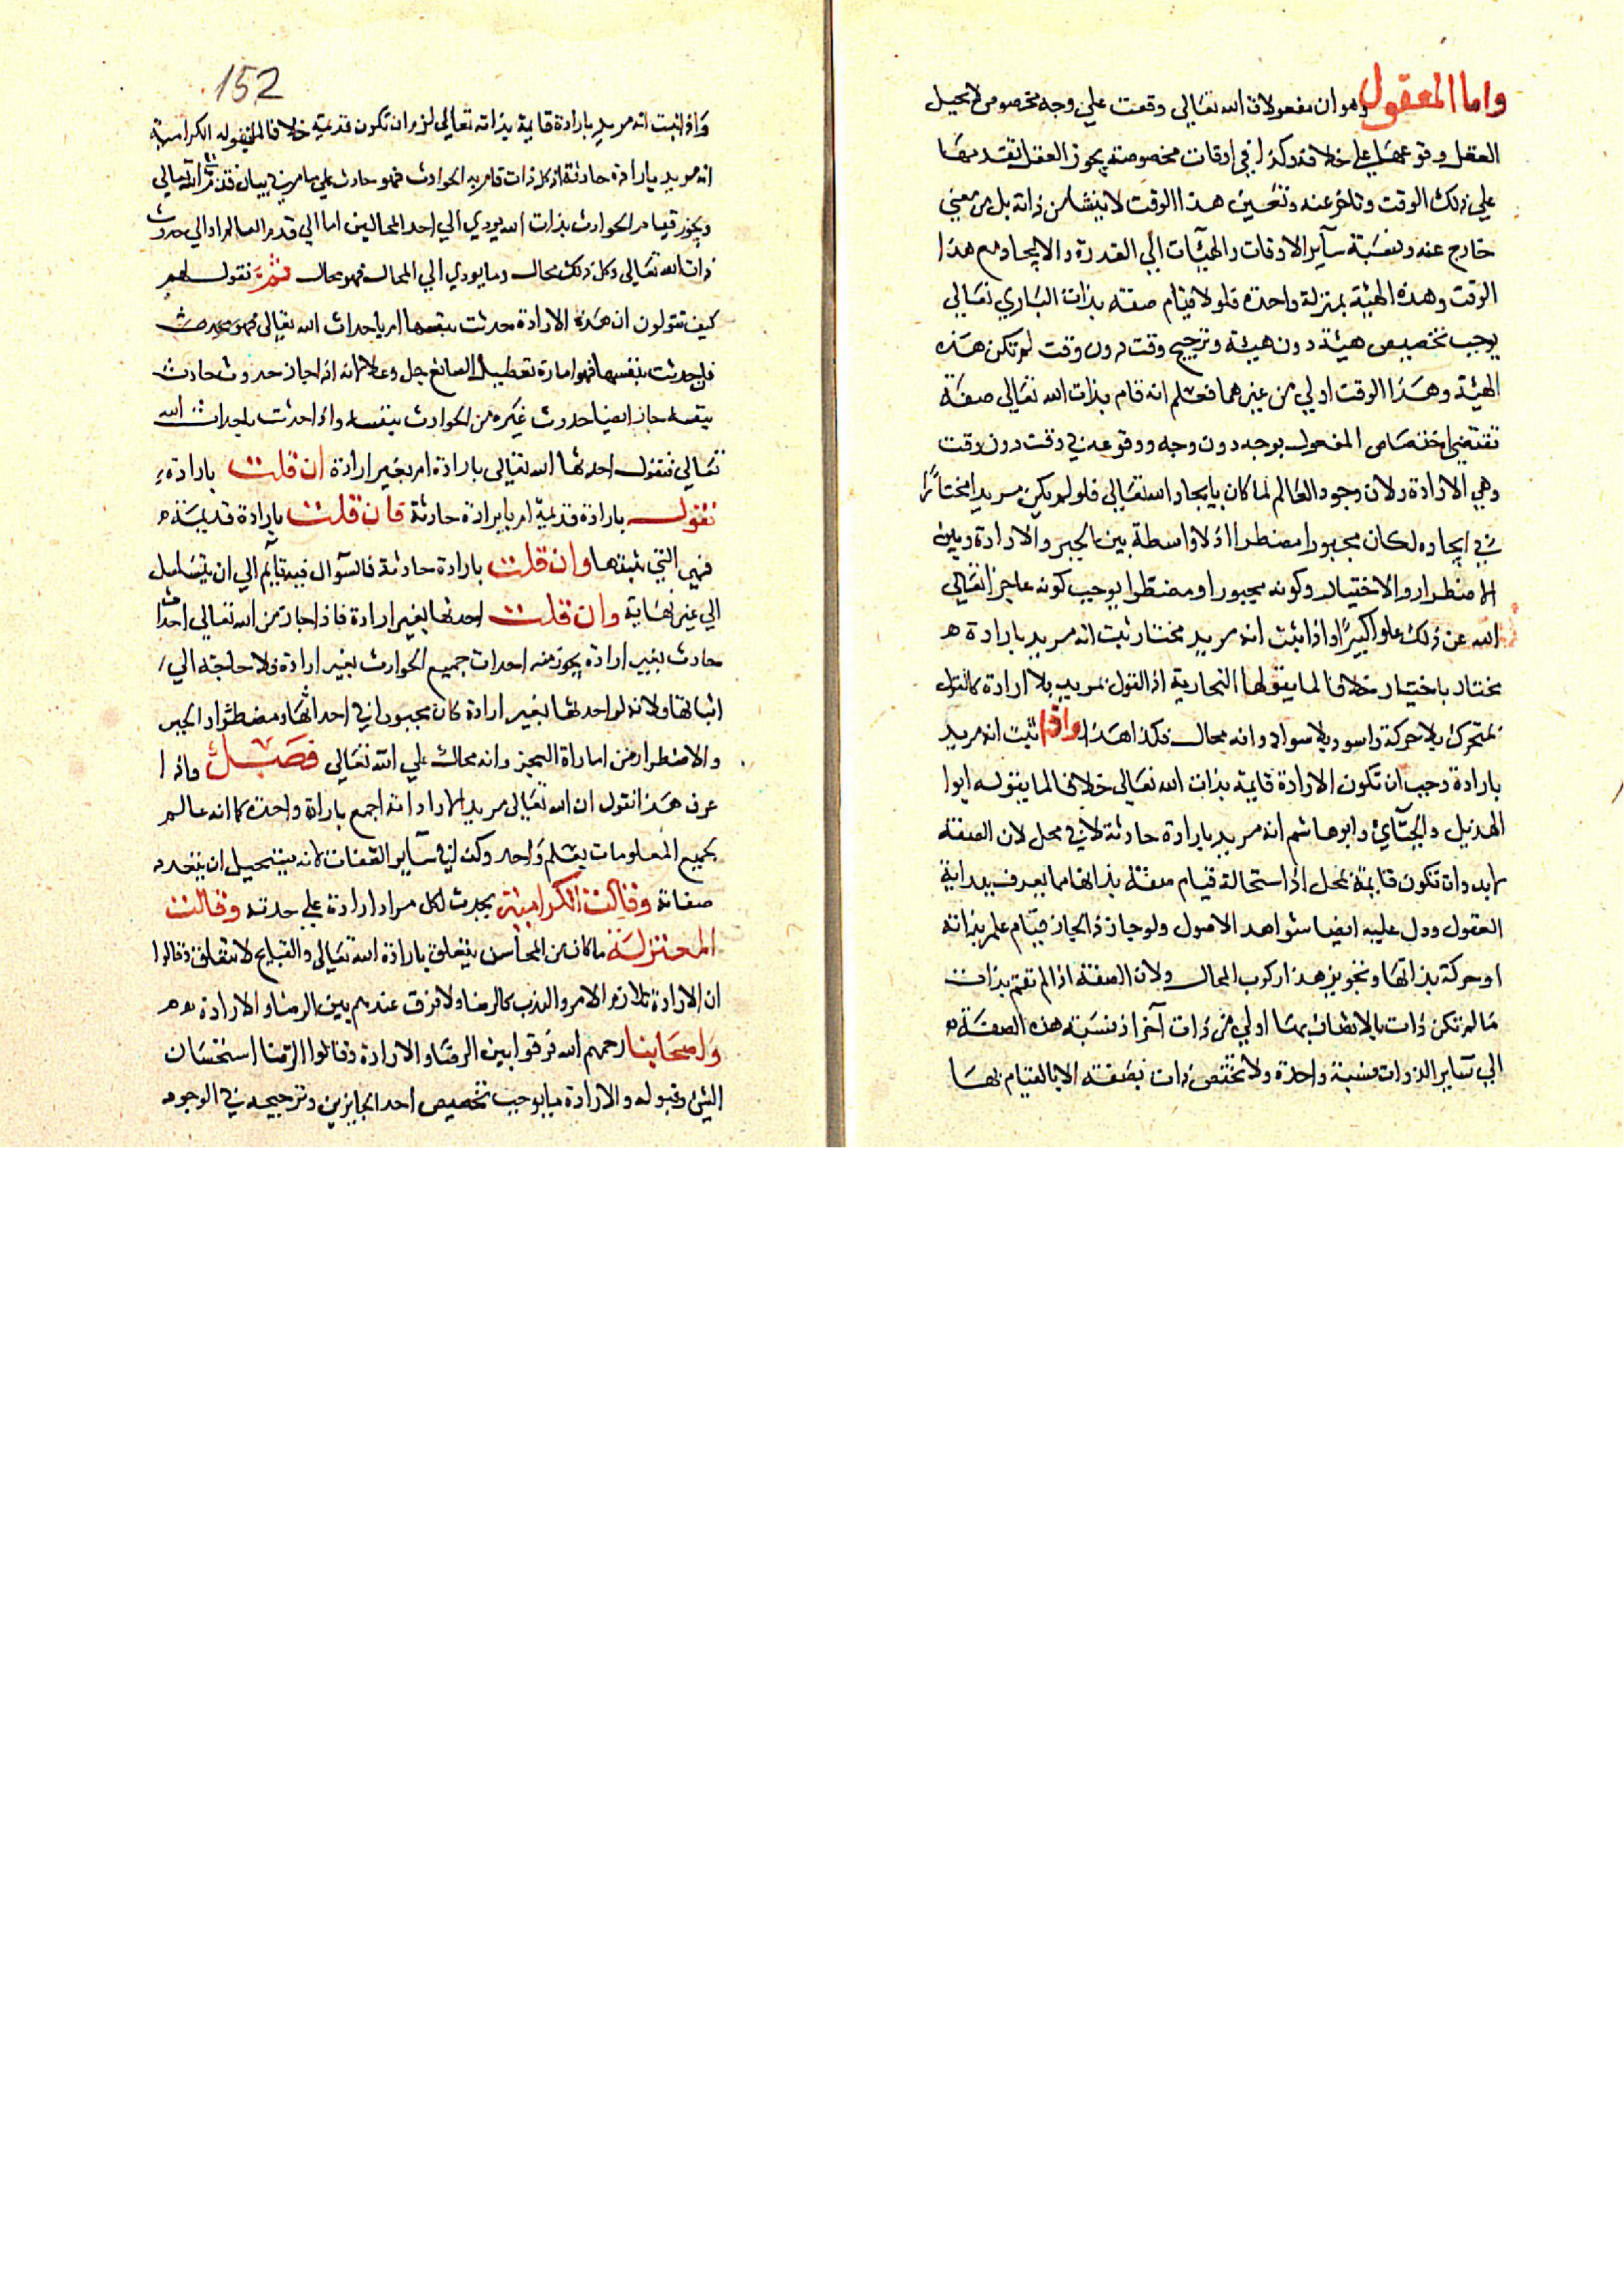 واما المعقول وهو ان مفعولات الله تعالي وقعت علي وجه مخصوص لا يحيل
العقل وقوعها علي خلافه وكذا في اوقات مخصوصة يجوز العقل تقدمها
علي ذلك الوقت وتاخر عنه وتحسين هذا الوقت لا ينشا من ذاته بل من معني
خارج عنه ونسبة سآير الاوقات والهيآت الي القدرة والايجاد مع هذا
الوقت وهذه الهيئة بمنزلة واحدة فلولا قيام صفته بذات الباري تعالي
يوجب تخصيص هيئة دون هيئة وترجيح وقت دون وقت لم تكن هذه
الهيئة وهذا الوقت اولي من غيرهما فعلم انه قام بذات الله تعالي صفة
تقتضي اختصاص المفعول بوجه دون وجه ووقوعه في وقت دون وقت
وهي الارادة ولان وجود العالم لما كان بايجاد الله تعالي فلو لم يكن مريدا مختارا
في ايجاده لكان مجبورا مضطرا اذ لا واسطة بين الجبر والارادة وبين
الاضطرار والاختيار وكونه مجبورا ومضطرا يوجب كونه عاجزا تعالي
الله عن ذلك علوا كبيرًا واذا ثبت انه مريد مختار ثبت انه مريد بارادة ه
مختار باختيار خلافا لما يقولها النجارية اذ القول بمريد بلا ارادة كالقول
بمتحرك بلا حركة واسود بلا سواد وانه محال فكذا هذا واذا ثبت انه مريد
بارادة وجب ان تكون الارادة قايمة بذات الله تعالي خلافا لما يقوله ابوا
الهذيل والجبّآي وابو هاشم انه مريد بارادة حادثة لا في محل لان الصفة
لابد وان تكون قايمة بمحل اذ استحالة قيام صفة بذاتها مما يعرف ببداية
العقول ودل عليه ايضا شواهد الاصول ولو جاز ذا لجاز قيام علم بذاته
او حركة بذاتها وتجويز هذا ركوب المحال ولان الصفة اذا لم تقم بذات
ما لم تكن ذات بالاتصاف بها اولي من ذات آخر اذ نسبة هذه الصفة ه
الي سآير الذوات نسبة واحدة ولا تختص ذات بصفة الا بالقيام بها
152
واذا ثبت انه مريد بارادة قايمة بذاته تعالي لزم ان تكون قديمة خلافا لما يقوله الكرامية
انه مريد بارادة حادثة اذ كل ذات قام به الحوادث فهو حادث علي ما مر في بيان قدم الله تعالي
ويجوز قيام الحوادث بذات الله يودي الي احد المحالين اما الي قدم العالم او الي حدوث
ذات الله تعالي وكل ذلك محال وما يودي الي المحال فهو محال ثمّ نقول لهم
كيف تقولون ان هذه الارادة حدثت بنفسها ام باحداث الله تعالي فهو محدث
فان حدثت بنفسها فهو امارة تعطيل الصانع جل وعلا لانه اذا جاز حدوث حادث
بنفسه جاز ايضا حدوث غيره من الحوادث بنفسه واذا حدثت باحداث الله
تعالي فنقول احدثها الله تعالي بارادة ام بغير ارادة ان قلت بارادة
نقول بارادة قديمة ام بارادة حادثة فان قلت بارادة قديمة ه
فهي التي نثبتها وان قلت بارادة حادثة فالسؤال فيه قآيم الي ان يتسلسل
الي غير نهاية وان قلت احدثها بغير ارادة فاذا جاز من الله تعالي احداث
حادث بغير ارادة يجوز منه احداث جميع الحوادث بغير ارادة فلا حاجة الي
اثباتها ولانه لو احدثها بغير ارادة كان مجبورا في احداثها ومضطرا والجبر
والاضطرار من اماراة العجز وانه محال علي الله تعالي فصل واذا
عرف هذا نقول ان الله تعالي مريد لمراداته اجمع بارادة واحدة كما انه عالم
بجميع المعلومات بعلم واحد وكذا في سآير الصفات لانه يستحيل ان يتعدد
صفاته وقالت الكرامية يحدث لكل مراد ارادة علي حدته وقالت
المعتزلة ما كان من المحاسن يتعلق بارادة الله تعالي والقبايح لا تتعلق وقالوا
ان الارادة تلازم الامر والندب كالرضا ولا فرق عندهم بين الرضا والارادة ه
واصحابنا رحمهم الله فرقوا بين الرضا والارادة وقالوا الرضا استحسان
الشي وقبوله والارادة ما يوجب تخصيص احد الجايزين وترجيحه في الوجود